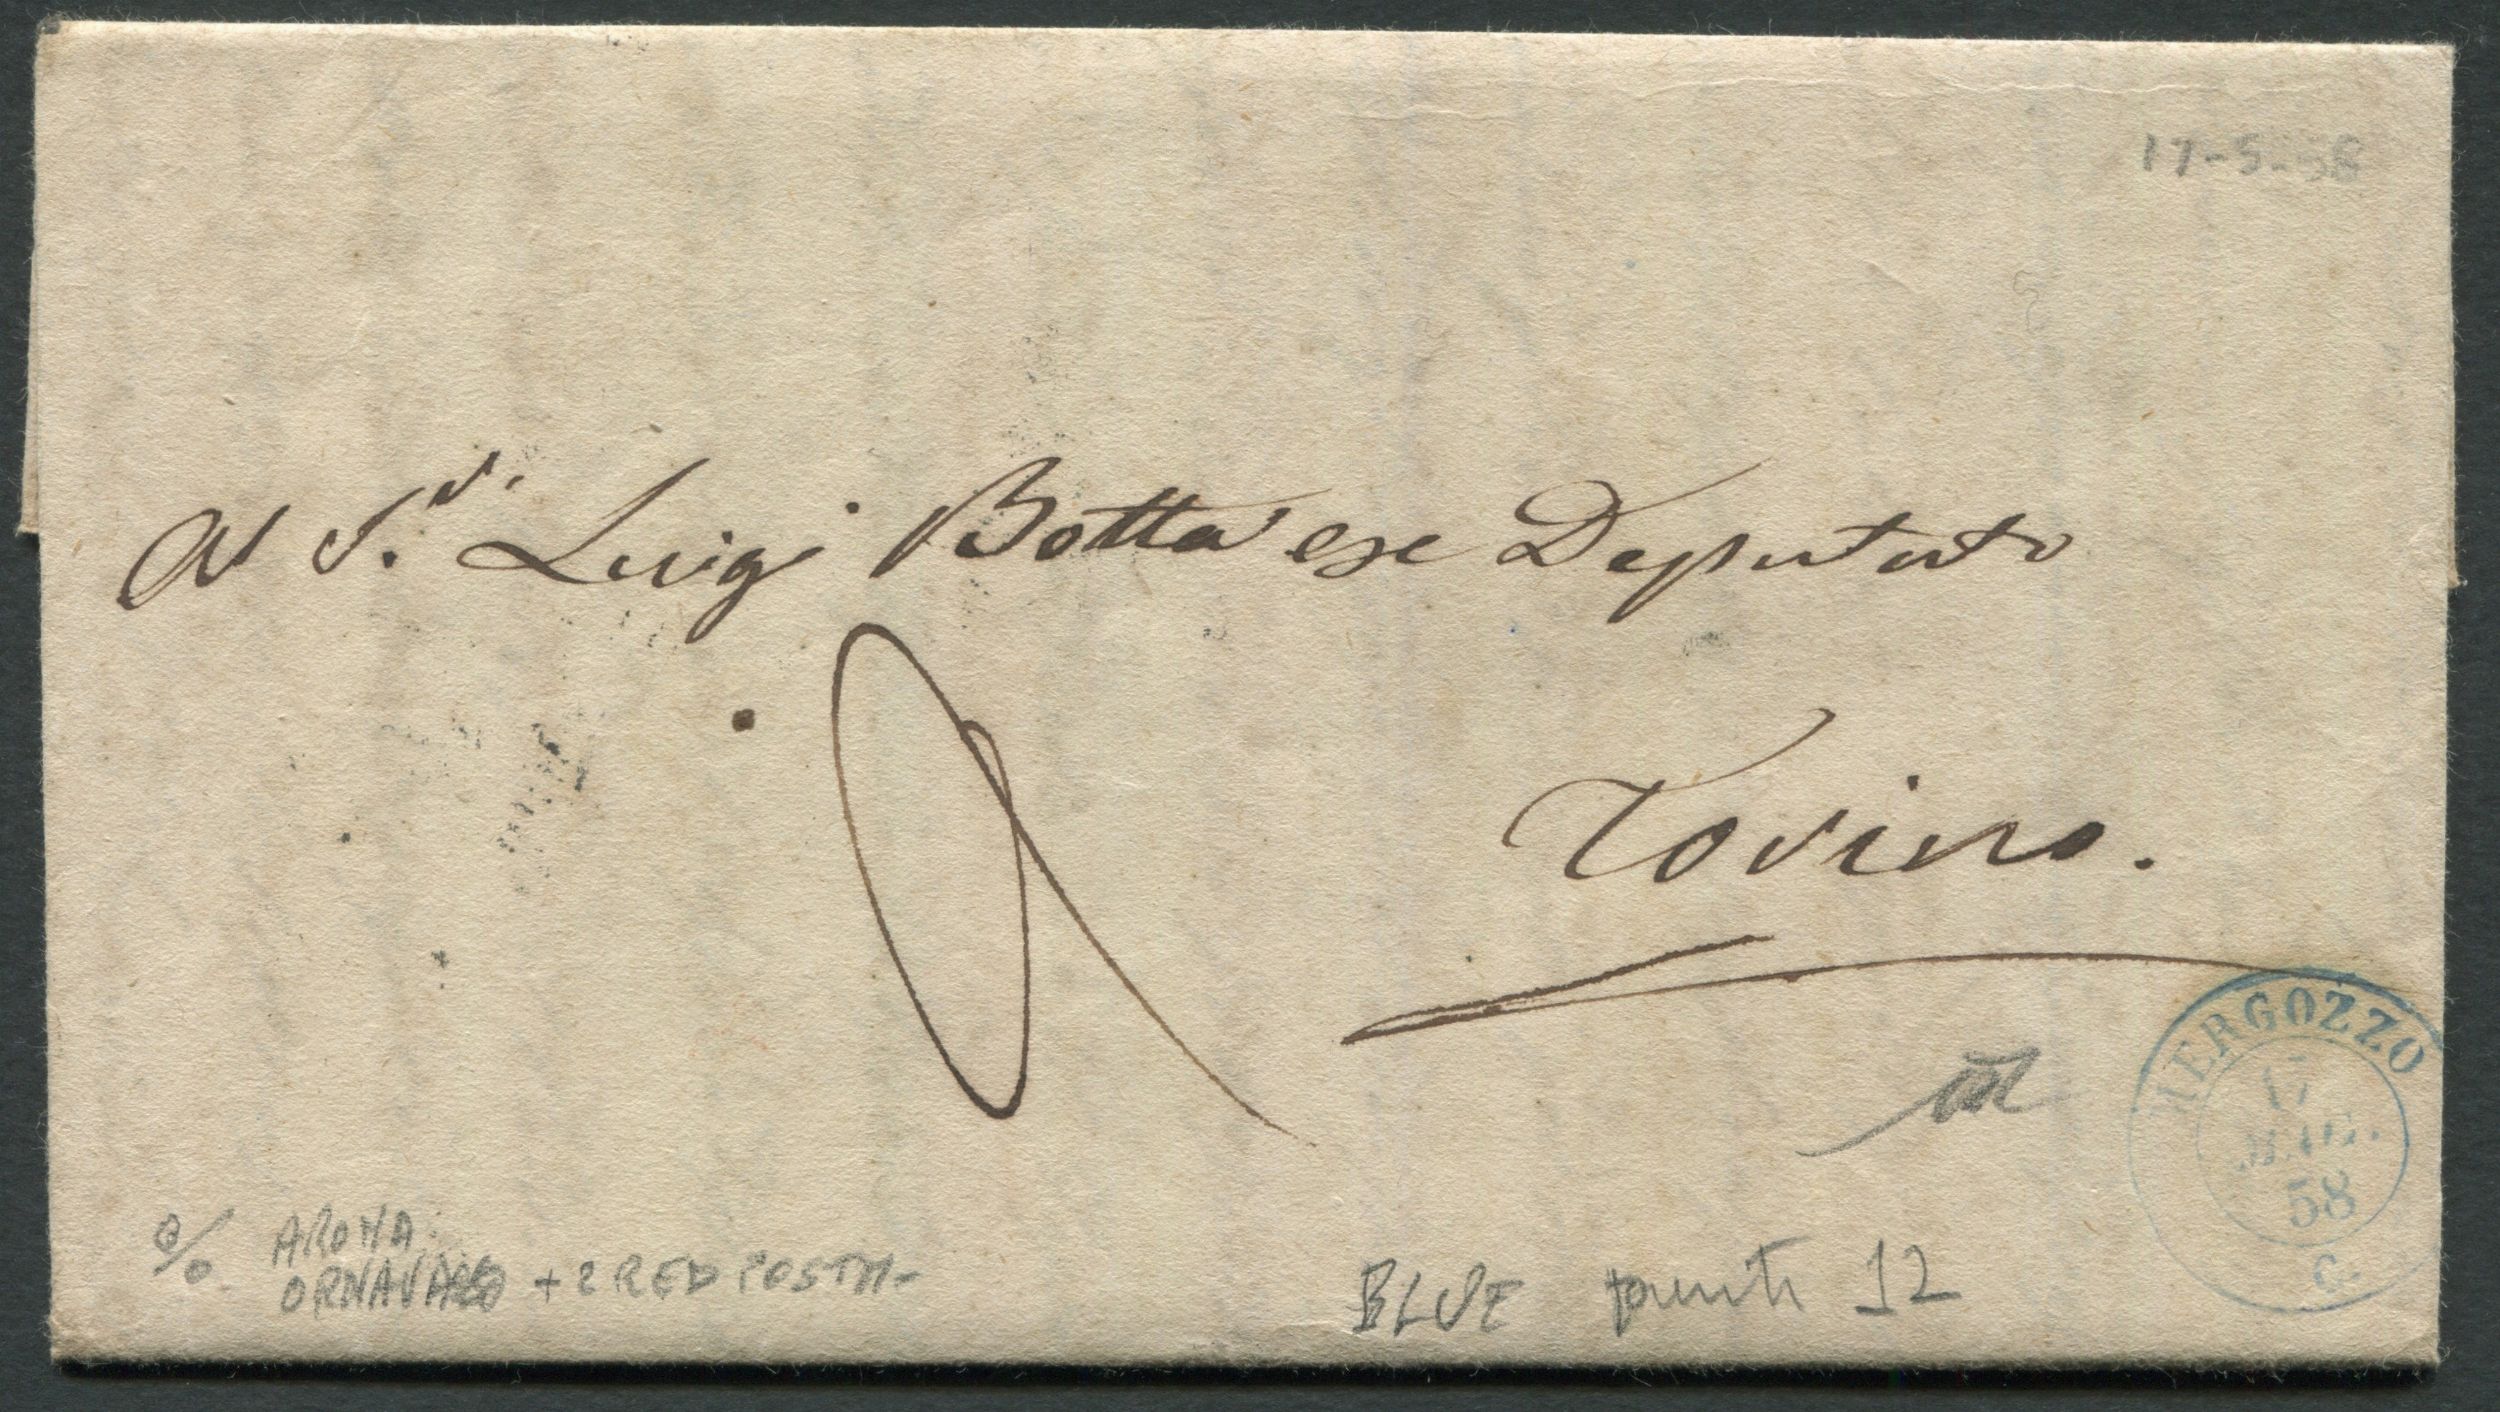 17-5-58
Al S.r Luigi Botta ex Deputato
Torino.
MERGOZZO
17
MAG.
58
C.
ARONA
ORNAVASSO + 2 RED POSTM-
BLUE punti 12